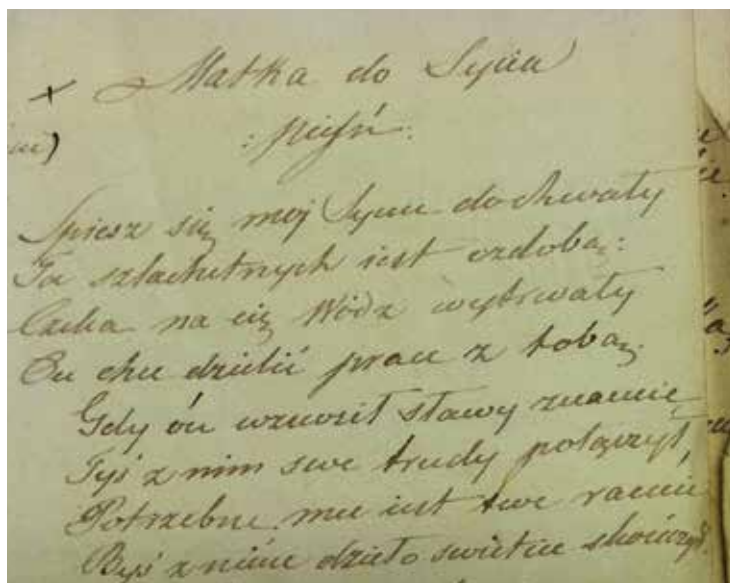 Matka do Syna
: pieśń :
Spiesz się moj Synu do chwały
Ta szlachetnych iest ozdobą:
Czeka na cię Wódz wytrwały
On chce dzielić prace z tobą.
Gdy ón wznosił sławy znamie
Tyś z nim swe trudy połączył,
Potrzebne mu iest twe ramie
Byś z nim dzieło swietne skończył.